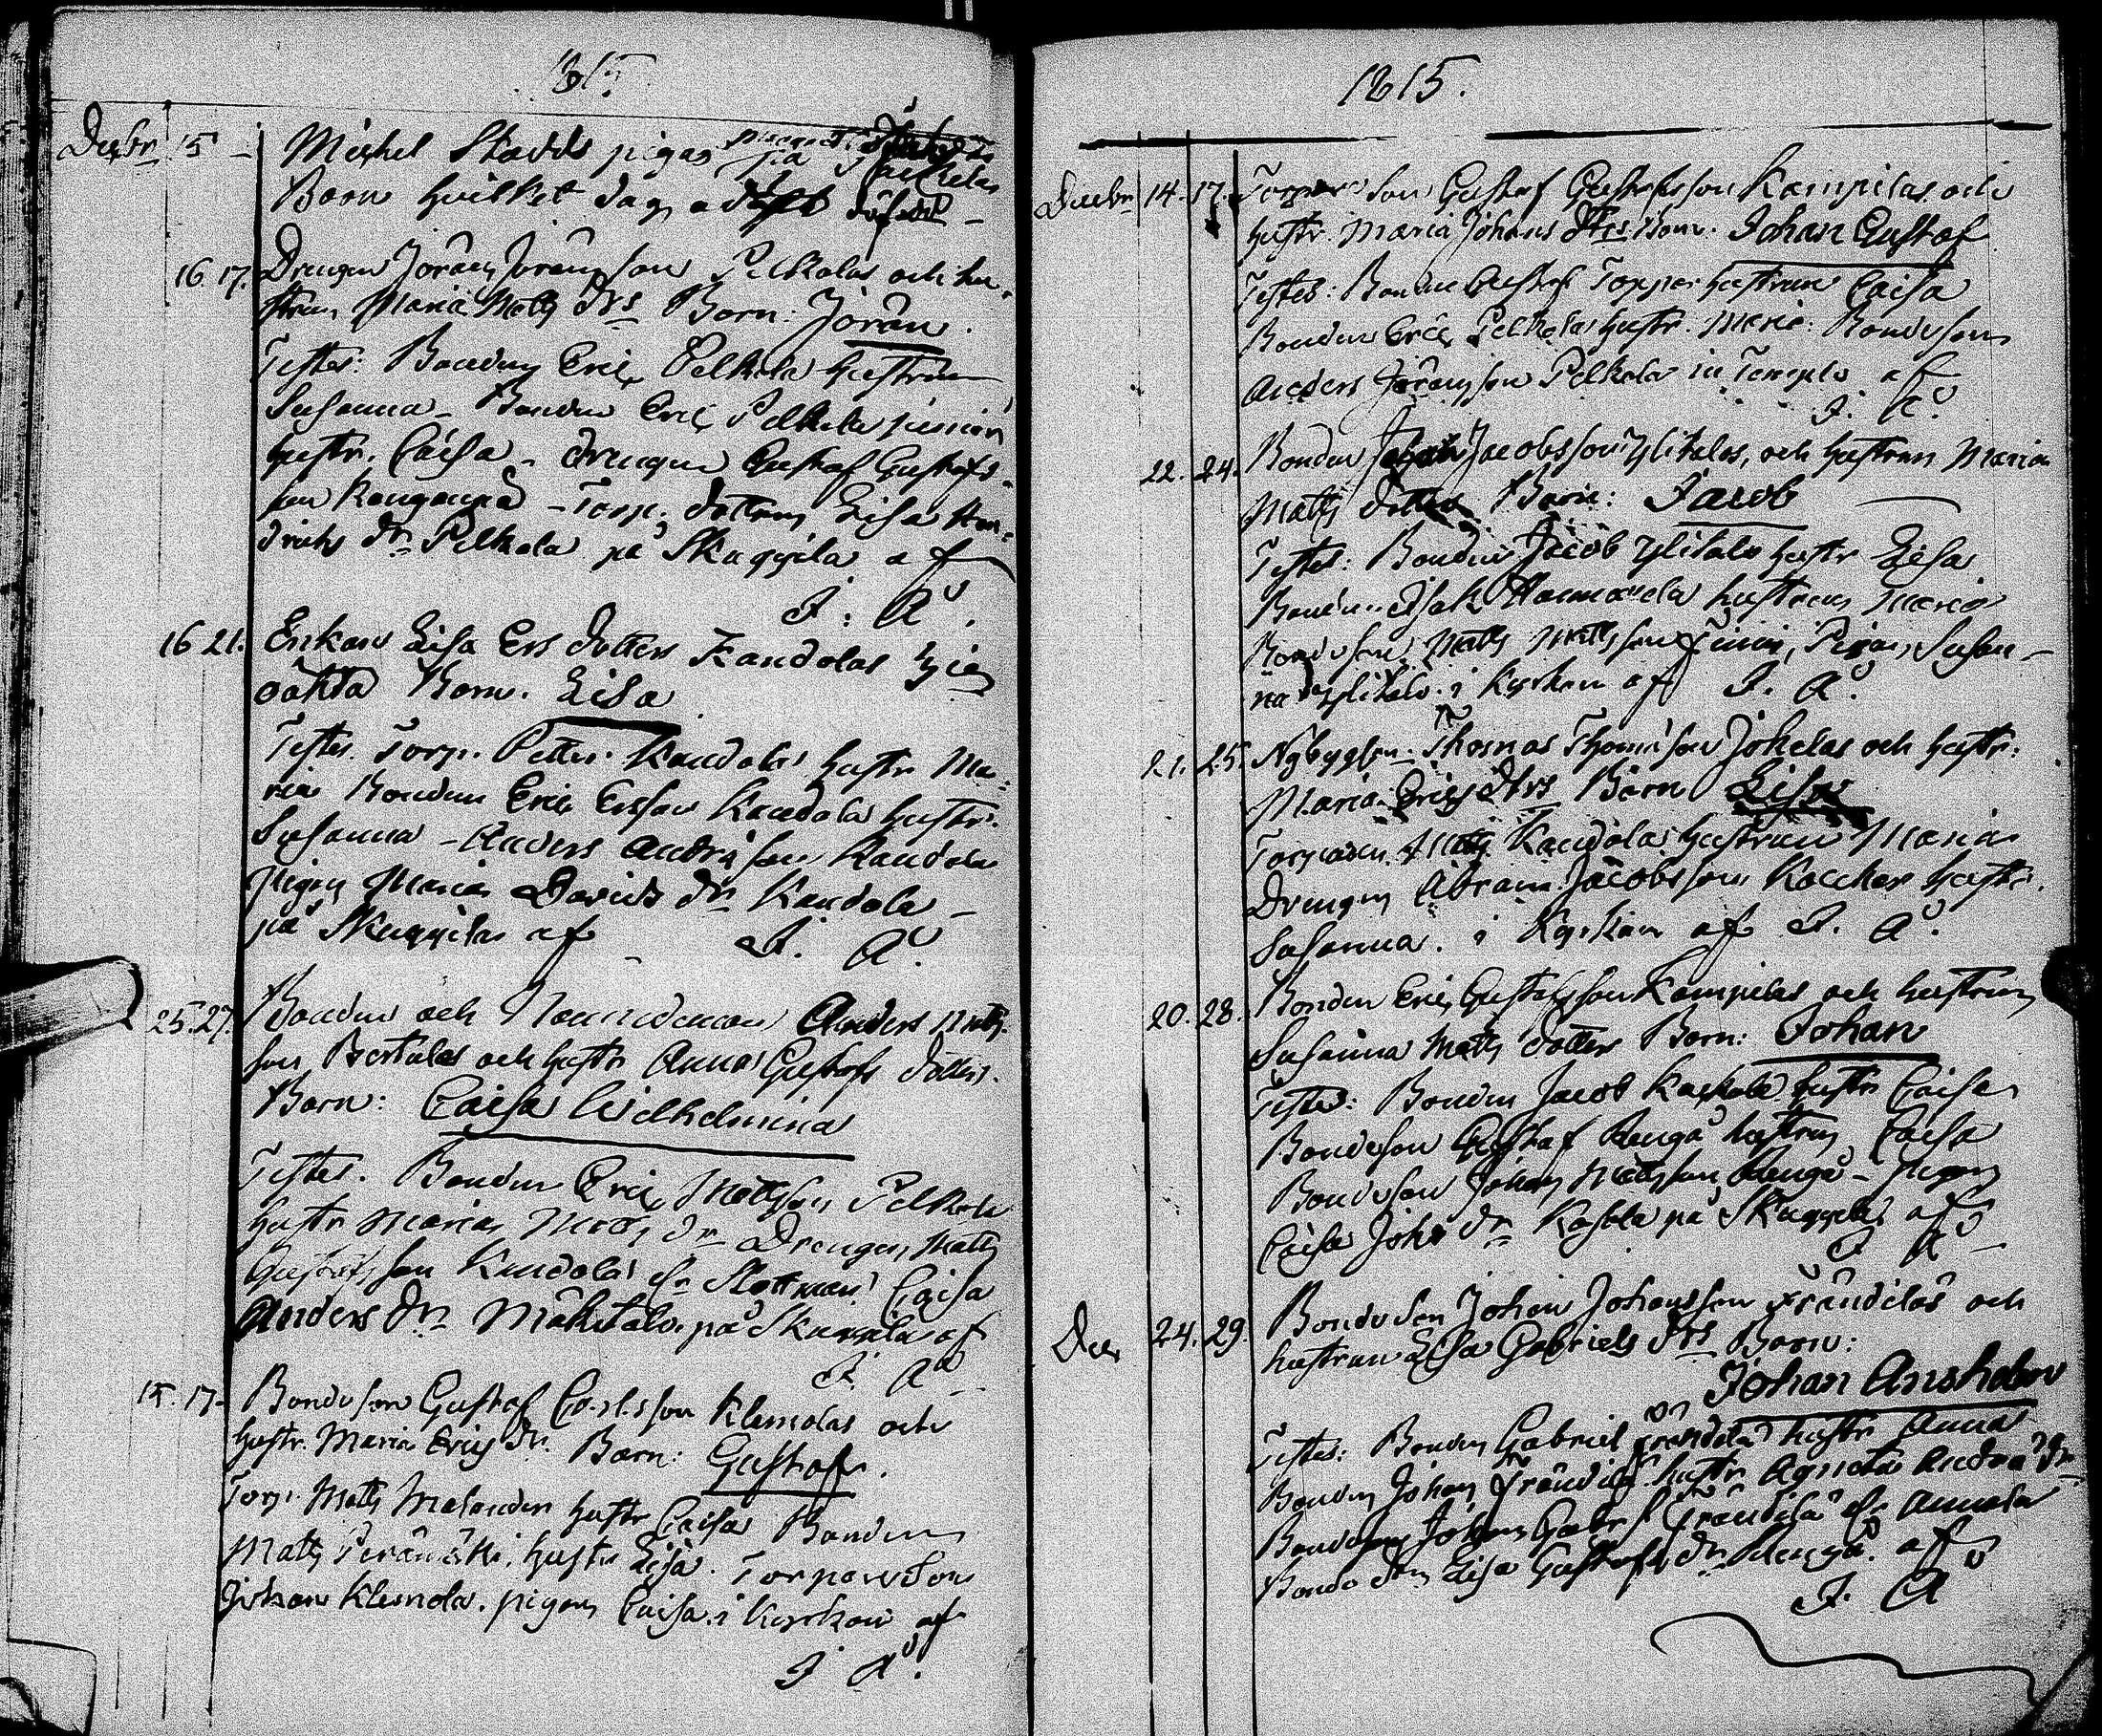 1815
Decbr 15 - Michel Stadds pigas
Barn hvilket dag
16 17. Drengen Jöran Jöransson Pelkolas och hu-
strus Maria Matts drs Barn: Jöran.
Testes: Bonden Eric Pelkola hustrun
Susanna - Bonden Eric Pelkola junior
hustr. Caisa - drengen Gustaf Gustafs-
son Rengonpä - Torp. dottern Lisa Hen-
drichs dr Pelkola på Skaggila af
I. A.
16 21. Enkans Lisa Ers dotters Kandolas
oäkta Barn. Lisa
Testes. Torp. Petter Kandola hustr Ma-
ria Bonden Eric Ersson Kandola hustr.
Susanna - Anders Andrsson Kandola
pigan Maria Davids dr Kandola -
på Skaggila af I. A.
25. 27. Bonden och Nämndeman Anders Matts
son Bertulas och hustr Annas Gustafs dotters
Barn: Caisa Wilhelmina
Testes. Bonden Eric Mattsson Pelkola
hustr Maria Matts dr Drengen Matts
Gustafsson Kandola Caisa
Anders dr Mäkitalo på Skaggila af
I. A.
15. 17. Bondeson Gustaf Carlsson Klemolas och
hustr. Maria Erics dr. Barn: Gustaf.
Torp. Matts Melender hustr Caisa Bonden
Matts hustr Lisa. Torpareson
Johan Klemola. pigan Caisa. i Kyrkan af
I A.
1815.
Decbr 14. 17. Torpareson Gustaf Gustafsson Kampilas och
hustr. Maria Johans dtrs Barn. Johan Gustaf
Testes: Bonden Gustaf Toppar hustrun Caisa
Bonden Eric Pelkola hustr. Maria. Bondeson
Anders Jöransson Pelkola in Templo af
I. A.
22. 24. Bonden Jacobsson Ylitalos, och hustrun Maria
Matts dotters Barn: Jacob
Testes: Bonden Jacob Ylitalo hustr Lisa
Bonden Isak hustrun Maria
Bondeson Matts Mattsson Pigan, Susan-
na Ylitalo. i Kyrkan af I. A.
21. 25. Nybyggaren Thomas Thomsson Jokelas och hustr.
Maria Erics dtrs Barn Lisa
Torparen Matts Kandola hustrun Maria
Drengen Abram Jacobsson hustr.
Susanna. i Kyrkan af I. A.
20. 28. Bonden Eric Gustafsson Kampilas och hustrun
Susanna Matts dotters Barn: Johan
Testes: Bonden Jacob Kaskola hustr Caisa
Bondeson Gustaf Rengå hustrun Caisa
Bondeson Johan Mattsson Rengå - pigan
Caisa Johs dr Kaskola på Skaggila af
I A
Dec 24. 29. Bondeson Johan Johansson Frändiläs och
hustrun Lisa Gabriels dtrs Barn:
Johan Anshelm
Testes: Bonden Gabriel Frändilä hustr Anna
Bonden Johan Frändilä hustr Agneta Andrs dr
Bondeson Johan Gabr. Frändilä
Bonde dtrn Lisa Gustafs dr Rengå. af
I. A